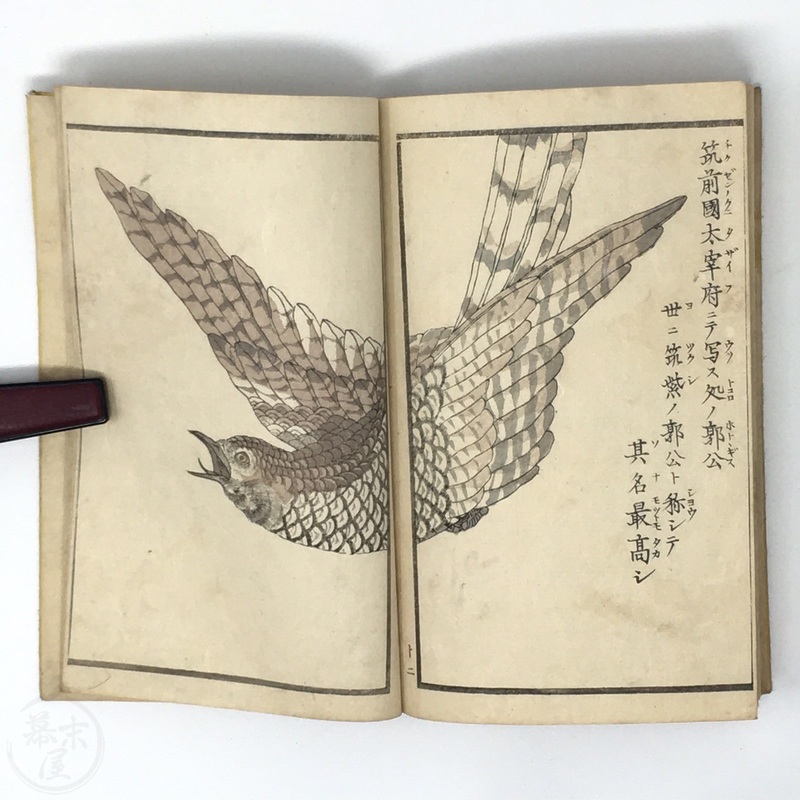 筑前國太宰府ニテ写ス処ノ郭公
世ニ筑紫ノ郭公ト称シテ
其名最高シ
十二
幕末屋